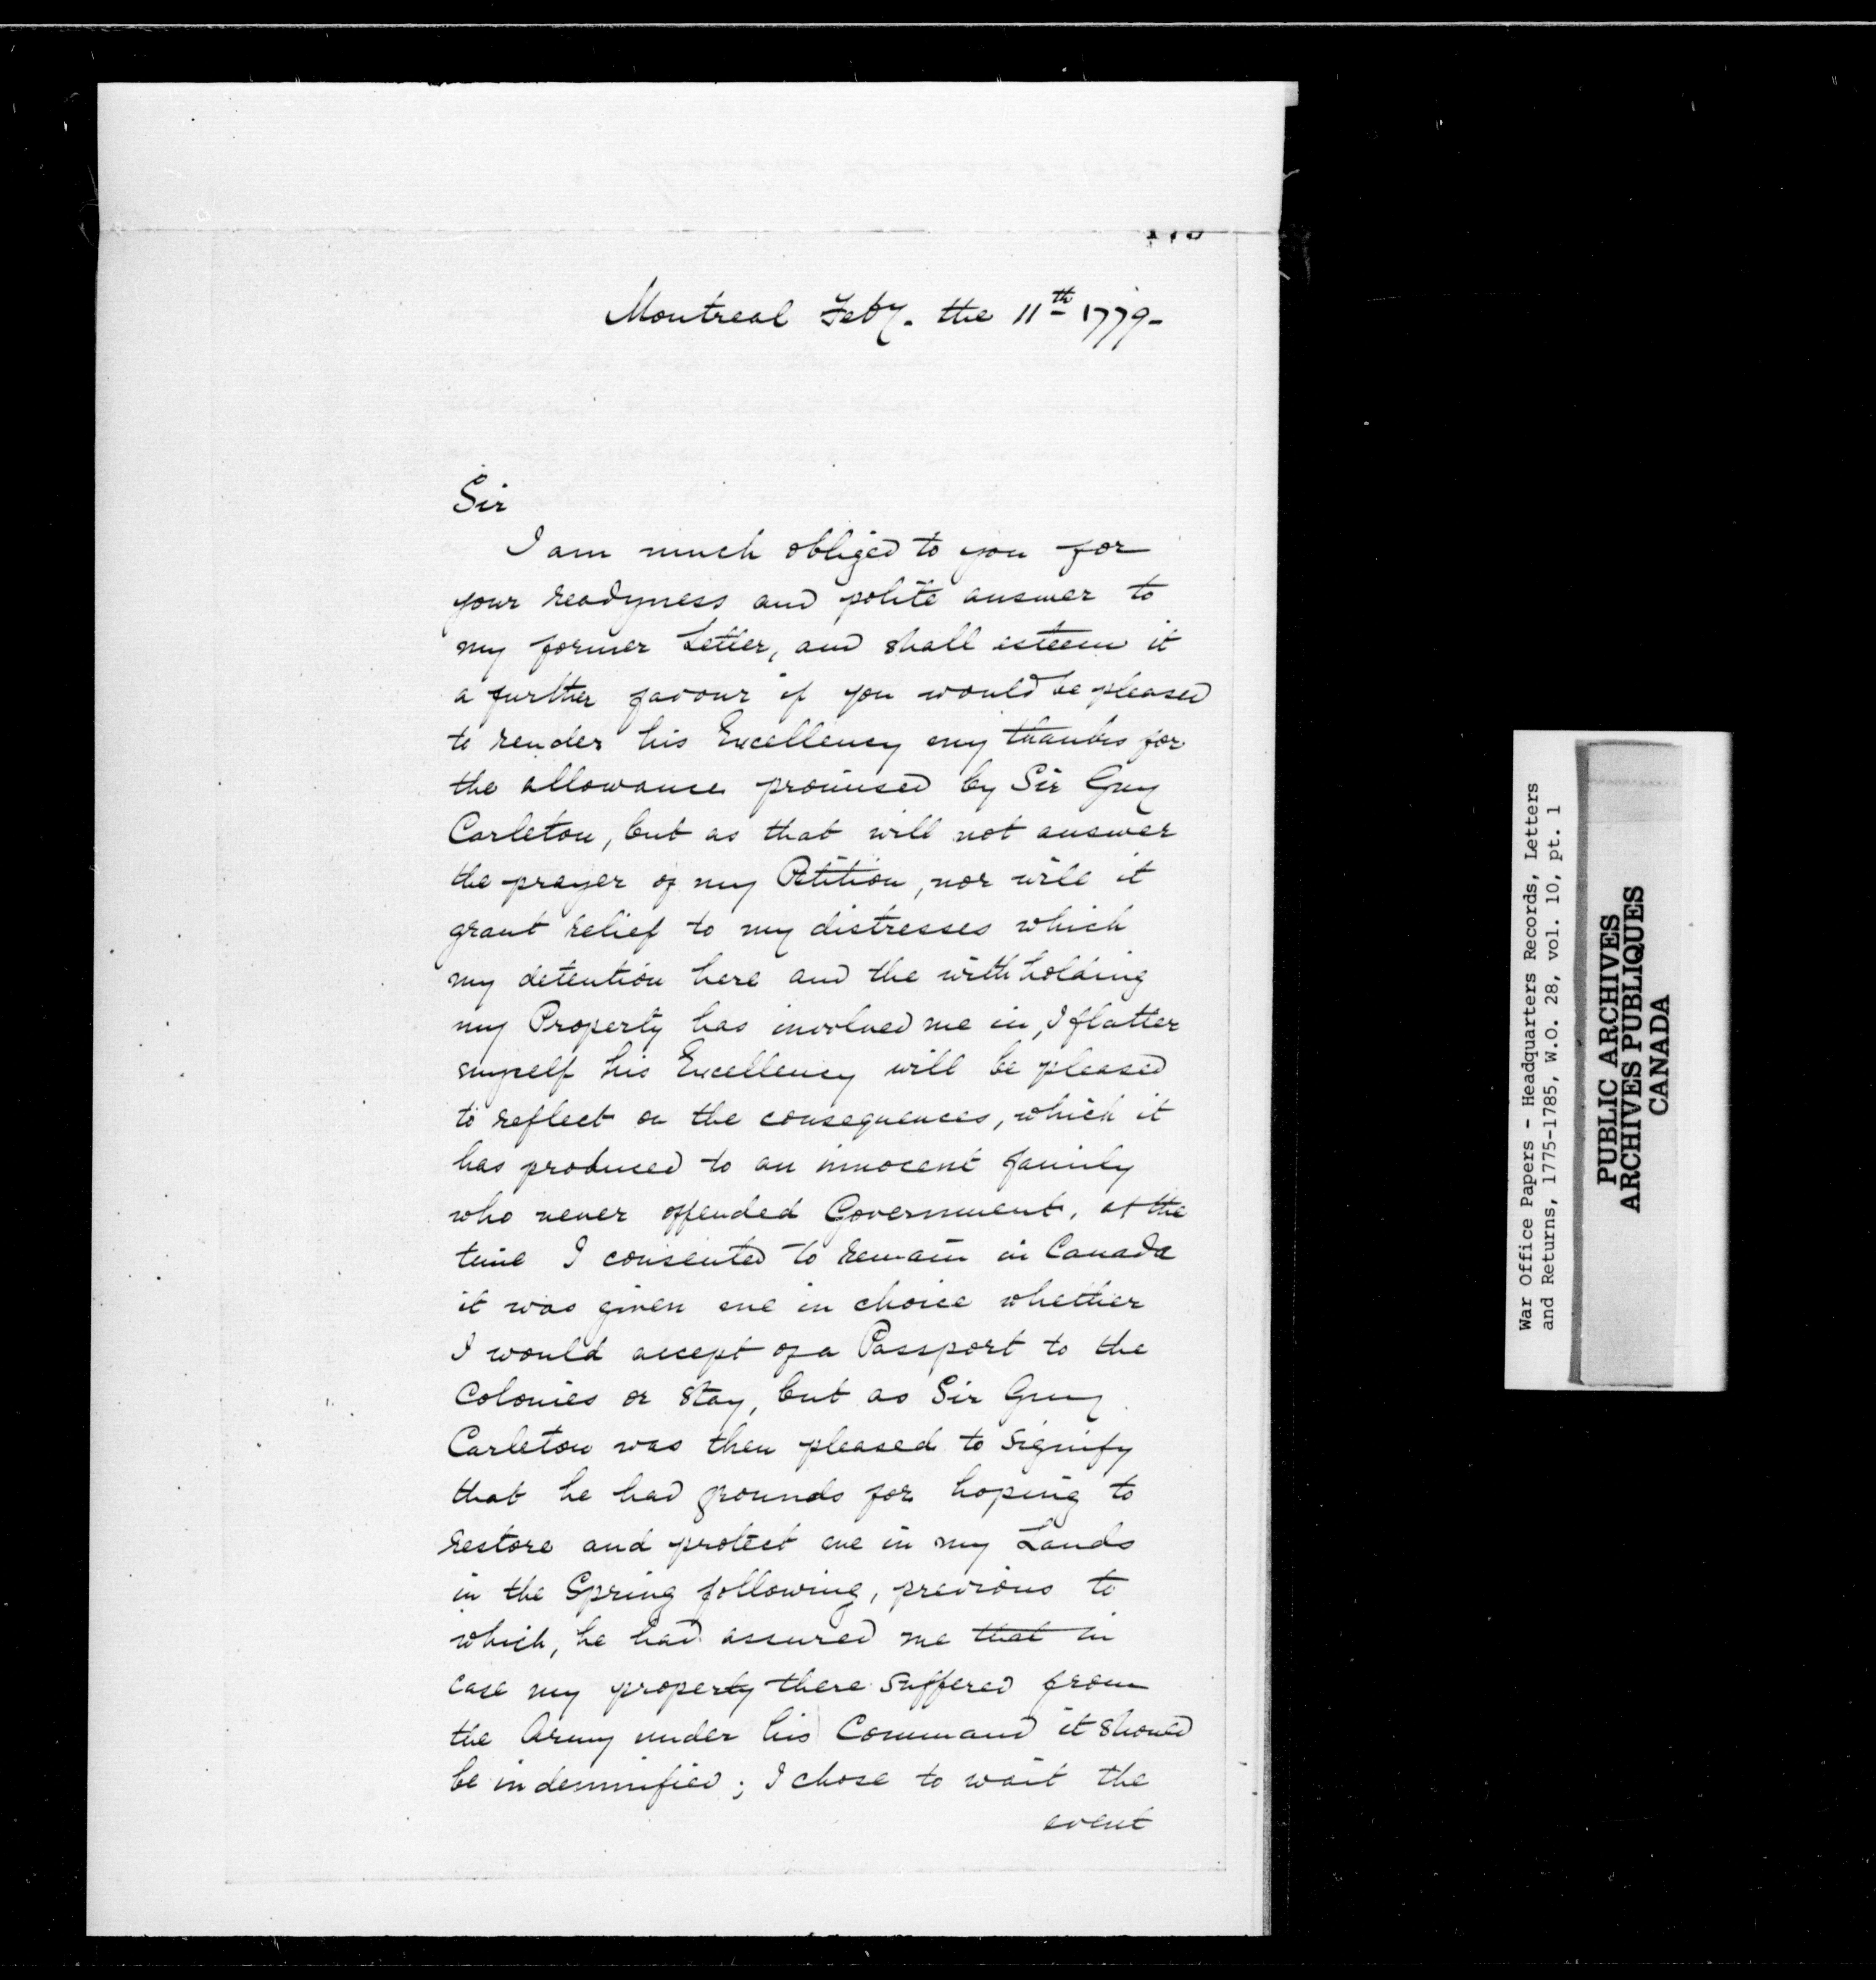 Montreal Feby. the 11th 1779-
Sir
I am much obliged to you for
your readyness and polite answer to
my former Letter, and shall esteem it
a further favour if you would be pleased
to render his Excellency my thanks for
the allowance promised by Sir Guy
Carleton, but as that will not answer
the prayer of my Petition, nor will it
grant relief to my distresses which
my detention here and the withholding
my Property has involved me in, I flatter
myself his Excellency will be pleased
to reflect on the consequences, which it
has produced to an innocent family
who never offended Government, at the
time I consented to remain in Canada
it was given me in choice whether
I would accept of a Passport to the
Colonies or stay, but as Sir Guy
Carleton was then pleased to signify
that he had grounds for hoping to
restore and protect me in my Lands
in the Spring following, previous to
which, he had assured me that in
case my property there suffered from
the Army under his Command it should
be indemnified; I chose to wait the
event
War Office Papers - Headquarters Records, Letters
and Returns, 1775-1785, W.O. 28, vol. 10, pt. 1
PUBLIC ARCHIVES
ARCHIVES PUBLIQUES
CANADA